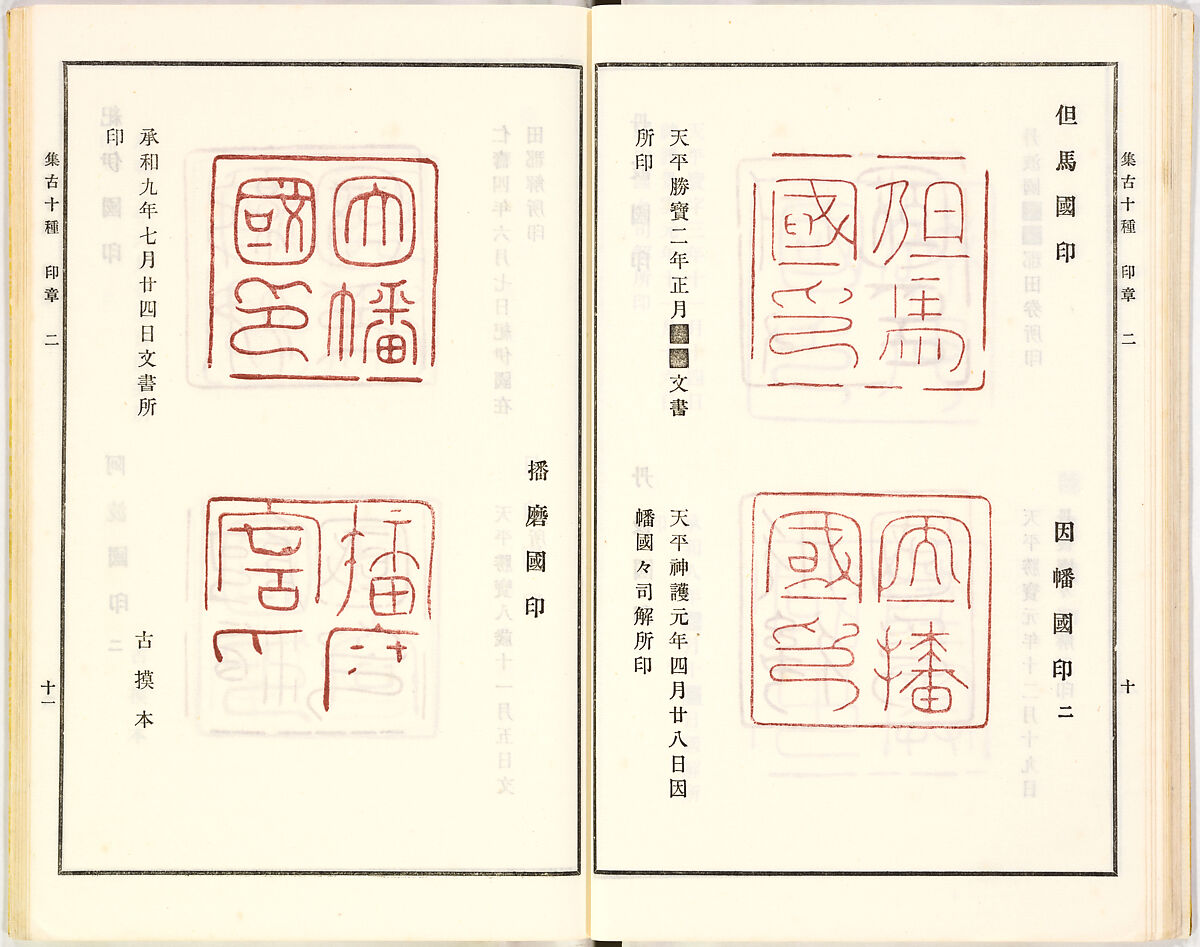 集古十種 印章 二
十
但馬國印
但馬國印
天平勝寶二年正月
文書
所印
因幡國印二
因幡國印
天平神護元年四月廿八日因
幡國々司解所印
因幡國印
承和九年七月廿四日文書所
印
播磨國印
古摸本
集古十種 印章 二
十一